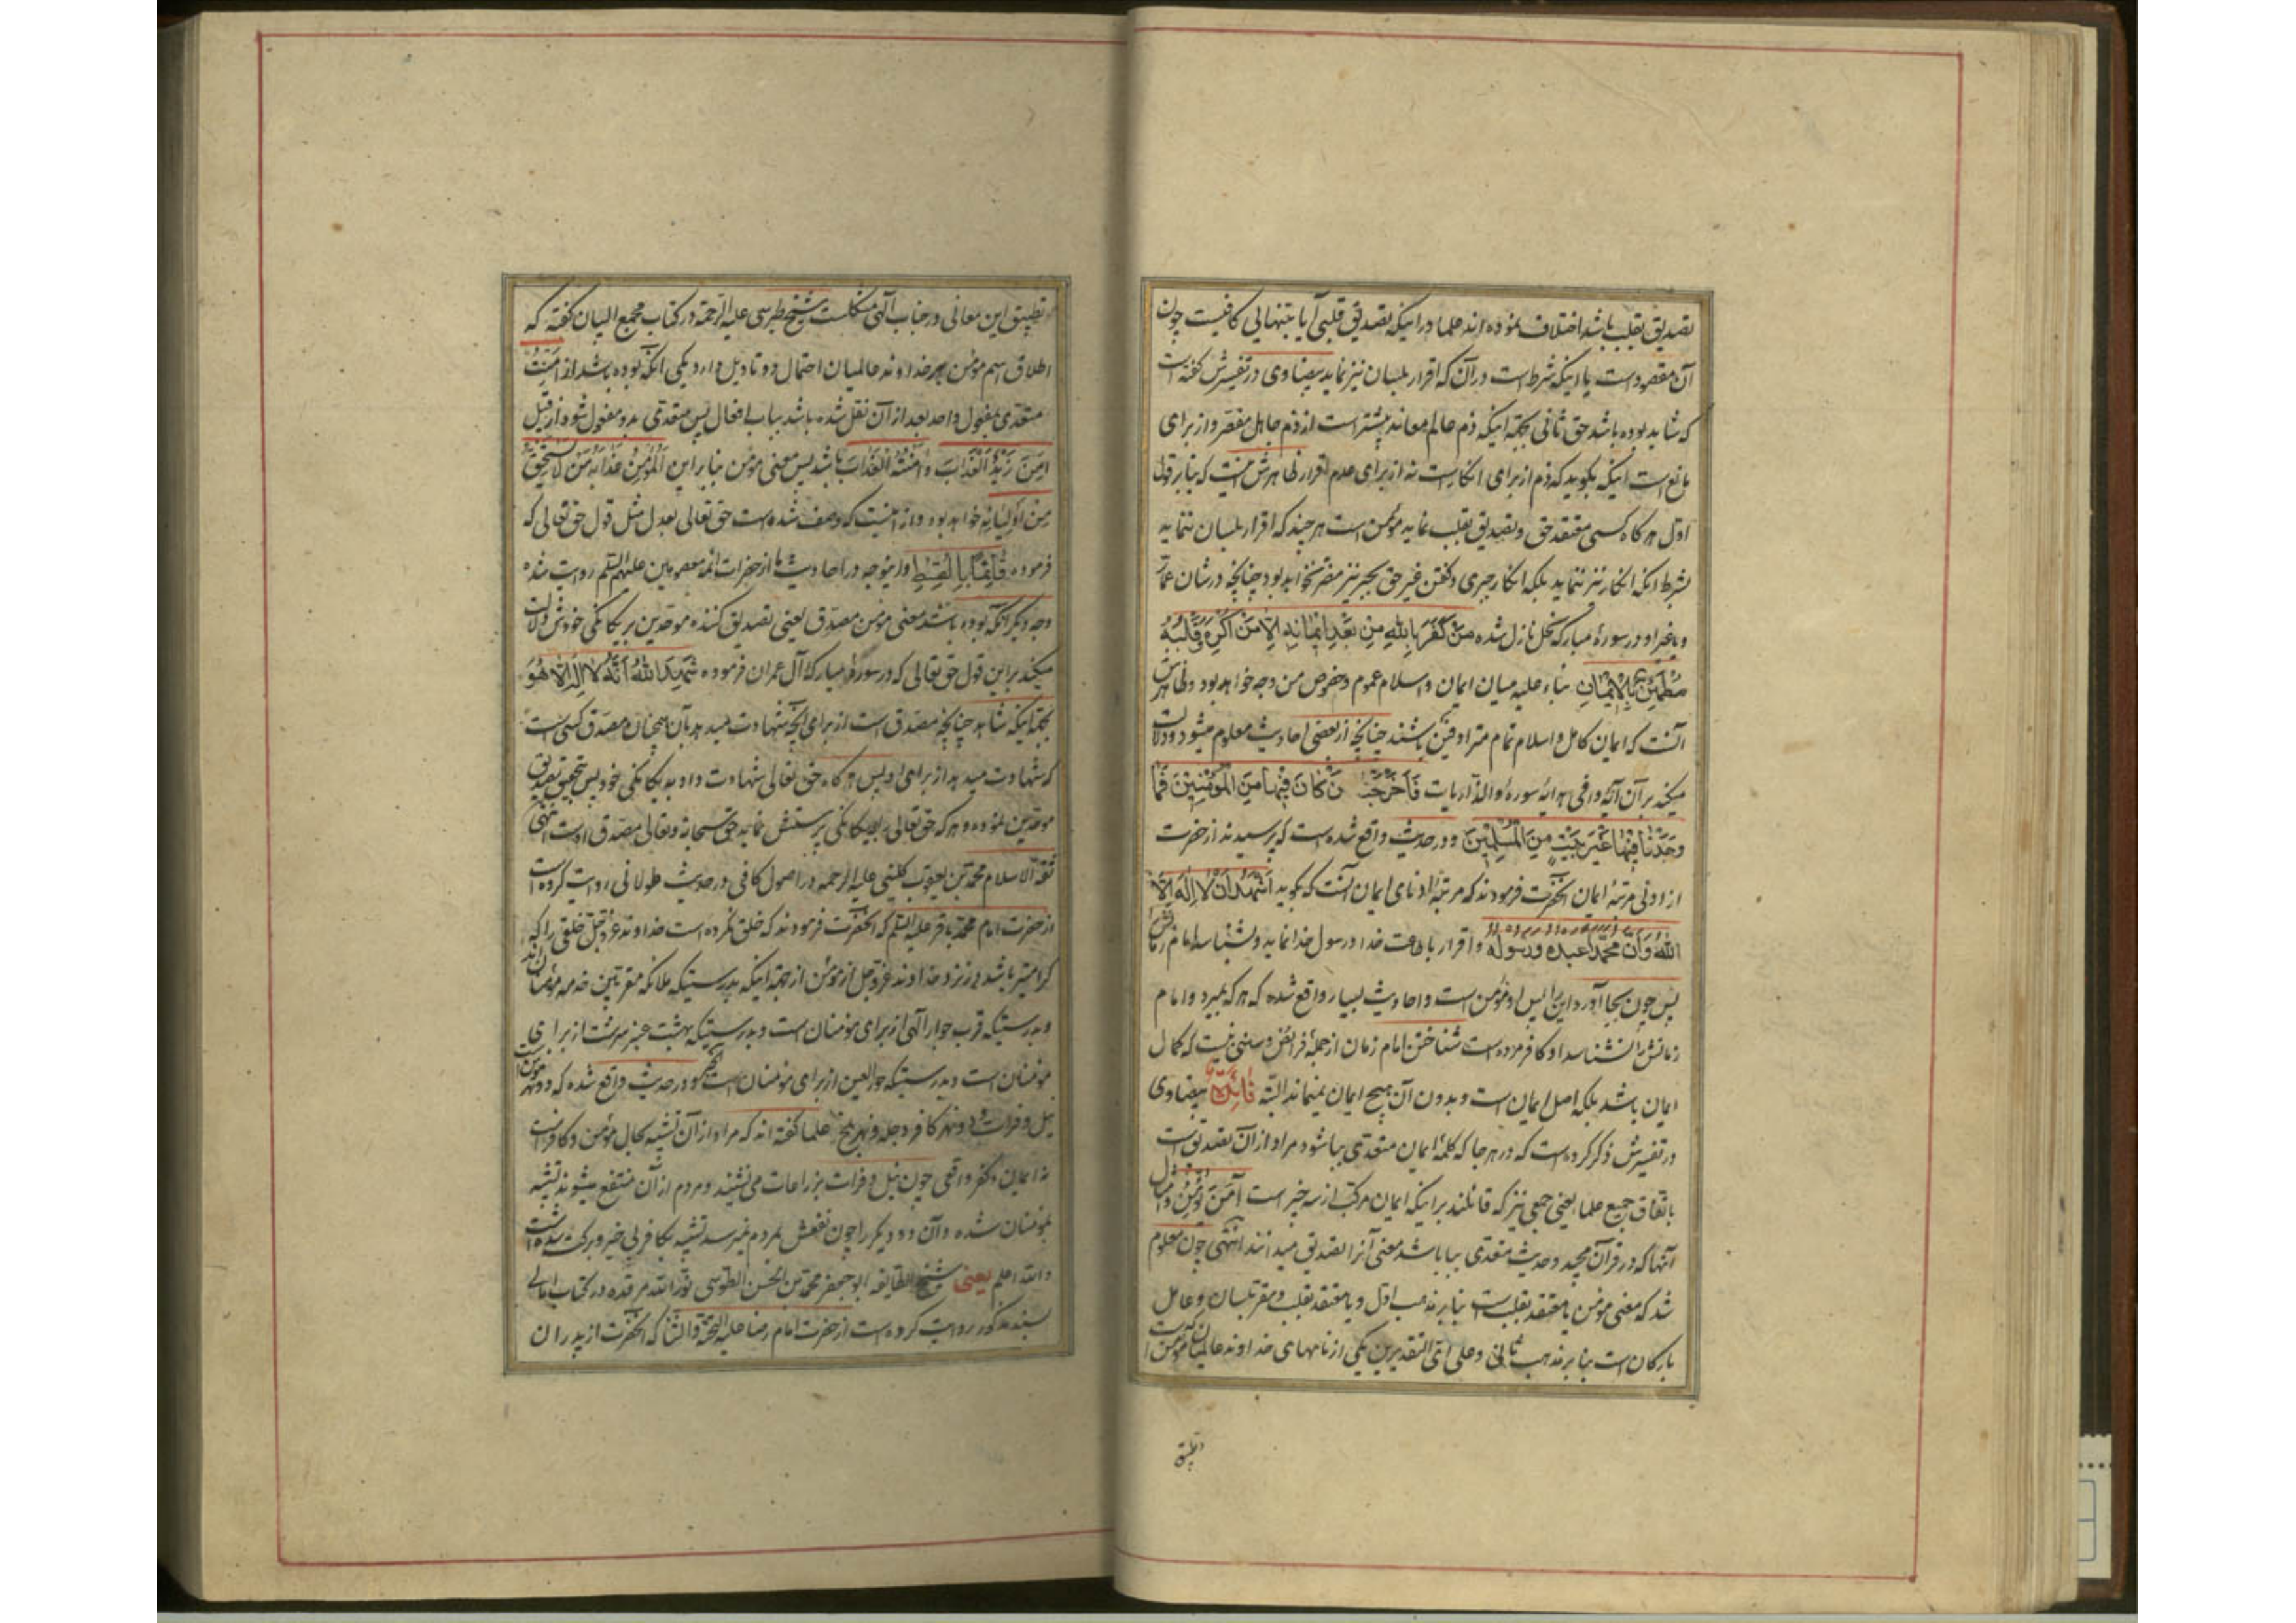 تصدیق بقلب باشد اختلاف نموده اند علما در اینکه تصدیق قلبی آیا بتنهائی کافیست چون
آن مقصود است یا اینکه شرط است در آن که اقرار بلسان نیز نماید بیضاوی در تفسیرش گفته است
که شاید بوده باشد حق ثانی بجهة اینکه ذم عالم معاند بیشتر است از ذم جاهل مقصر و از برای
مانع است اینکه بگوید که ذم از برای انکار است نه از برای عدم اقرار ظاهرش اینست که بنابر قول
اول هر گاه کسی معتقد حق و تصدیق بقلب نماید مؤمن است هر چند که اقرار بلسان ننماید
بشرط اینکه انکار نیز ننماید بلکه انکار جبری و گفتن غیر حق بجبر نیز مضر نخواهد بود چنانچه در شان عمار
و یا غیر او در سورهٔ مبارکه نحل نازل شده مَنْ كَفَرَ بِاللهِ مِن بَعْدِ ایمٰانِهِ اِلّا مَنْ اُكْرِهَ وَ قَلْبُهُ
مُطْمَئِنٌّ بِالْایمٰانِ بناء علیه میان ایمان و اسلام عموم و خصوص من وجه خواهد بود و ظاهرش
آنست که ایمان کامل و اسلام تمام مترادفین باشند چنانچه از بعضی احادیث معلوم میشود و دلالت
میکند بر آن آیهٔ وافی هدایهٔ سورهٔ والذاریات فَاَخْرَجْنٰا مَنْ كٰانَ فیهٰا مِنَ الْمُؤْمِنینَ فَمٰا
وَجَدْنٰا فیهٰا غَیْرَ بَیْتٍ مِنَ الْمُسْلِمینَ و در حدیث واقع شده است که پرسیدند از حضرت
از ادنی مرتبهٔ ایمان آنحضرت فرمودند که مرتبهٔ ادنای ایمان آنست که بگوید اَشْهَدُ اَنْ لٰا اِلٰهَ اِلَّا
اللهُ وَ اَنَّ مُحَمَّداً عَبْدُهُ وَ رَسُولُهُ و اقرار باطاعت خدا و رسول خدا نماید و بشناسد امام زمانش را
پس چون بجا آورد این را پس او مؤمن است و احادیث بسیار واقع شده که هر که بمیرد و امام
زمانش را نشناسد او کافر مرده است شناختن امام زمان از جملهٔ فرائض و سننی نیست که کمال
ایمان باشد بلکه اصل ایمان است و بدون آن هیچ ایمان نمیماند البته فائدة بیضاوی
در تفسیرش ذکر کرده است که در هر جا که کلمهٔ ایمان متعدی ببا شود مراد از آن تصدیق است
باتفاق جمیع علما یعنی جمعی نیز که قائلند بر اینکه ایمان مرکب از سه چیز است آمَنَ یُؤْمِنُ و امثال
آنها که در قرآن مجید و حدیث متعدی ببا باشد معنی آنرا تصدیق میدانند انتهی چون معلوم
شد که معنی مؤمن یا معتقد بقلب است بنابر مذهب اول و یا معتقد بقلب و مقر بلسان و عامل
بارکان است بنابر مذهب ثانی و علی ای التقدیرین یکی از نامهای خداوند عالمیان که مؤمن است
تطبیق
تطبیق این معانی در جناب الهی مشکلست شیخ طبرسی علیه الرحمة در کتاب مجمع البیان گفته که
اطلاق اسم مؤمن بر خداوند عالمیان احتمال دو تاویل دارد یکی آنکه بوده باشد از اَمِنْتُ
متعدی بمفعول واحد بعد از آن نقل شده باشد بباب افعال پس متعدی بدو مفعول شود از قبیل
اَمِنَ زَیْدٌ الْعَذٰابَ وَ آمَنْتُهُ الْعَذٰابَ باشد پس معنی مؤمن بنابر این الْمُؤْمِنُ عَذٰابَهُ مَنْ لٰا یَسْتَحِقُّ
مِنْ اَوْلِیٰائِهِ خواهد بود و از اینست که وصف شده است حق تعالی بعدل مثل قول حق تعالی که
فرموده قٰائِمٰاً بِالْقِسْطِ و این وجه در احادیث ما از حضرات ائمه معصومین علیهم السلم روایت شده
وجه دیگر آنکه بوده باشد معنی مؤمن مصدق یعنی تصدیق کننده موحدین بر یکانکی خودش دلالت
میکند بر این قول حق تعالی که در سورهٔ مبارکهٔ آل عمران فرموده شَهِدَ اللهُ اَنَّهُ لٰا اِلٰهَ اِلّٰا هُوَ
بجهة اینکه شاهد چنانچه مصدق است از برای آنچه شهادت میدهد بآن همچنان مصدق کسی است
که شهادت میدهد از برای او پس هر گاه حق تعالی شهادت داد به یکانکی خود پس بتحقیق تصدیق
موحدین نموده و هر که حق تعالی را بیکانکی پرستش نماید حق سبحانه و تعالی مصدق اوست انتهی
ثقة الاسلام محمد بن یعقوب کلینی علیه الرحمه در اصول کافی در حدیث طولانی روایت کرده است
از حضرت امام محمد باقر علیه السلم که آنحضرت فرمودند که خلق نکرده است خداوند عز و جل خلقی را که
گرامیتر باشد در نزد خداوند عز و جل از مؤمن از جهة اینکه بدرستیکه ملائکه مقربین خدمه مؤمنان اند
و بدرستیکه قرب جوار الهی از برای مؤمنان است و بدرستیکه بهشت عنبر سرشت از برای
مؤمنان است و بدرستیکه حور العین از برای مؤمنان است و در حدیث واقع شده که دو نهر مؤمن است
نیل و فرات و دو نهر کافر دجله و نهر بلخ علما گفته اند که مراد از آن تشبیه بحال مؤمن و کافر است
نه ایمان و کفر واقعی چون نیل و فرات بزراعات می نشیند و مردم از آن منتفع میشوند تشبیه
بمؤمنان شده و آن دو دیکر را چون نفعش بمردم نمیرسد تشبیه بکافر بی خیر و برکت شده است
والله اعلم یعنی شیخ الطایفه ابو جعفر محمد بن الحسن الطوسی نور الله مرقده در کتاب امالی
بسند مذکور روایت کرده است از حضرت امام رضا علیه التحیة و الثنا که آنحضرت از پدران